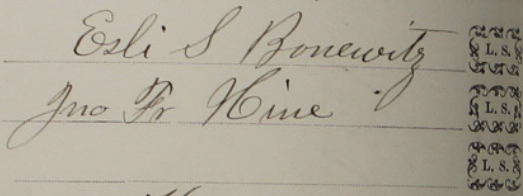 Esli S Bonewitz L. S.
Jno Fr Hine L. S.
L. S.